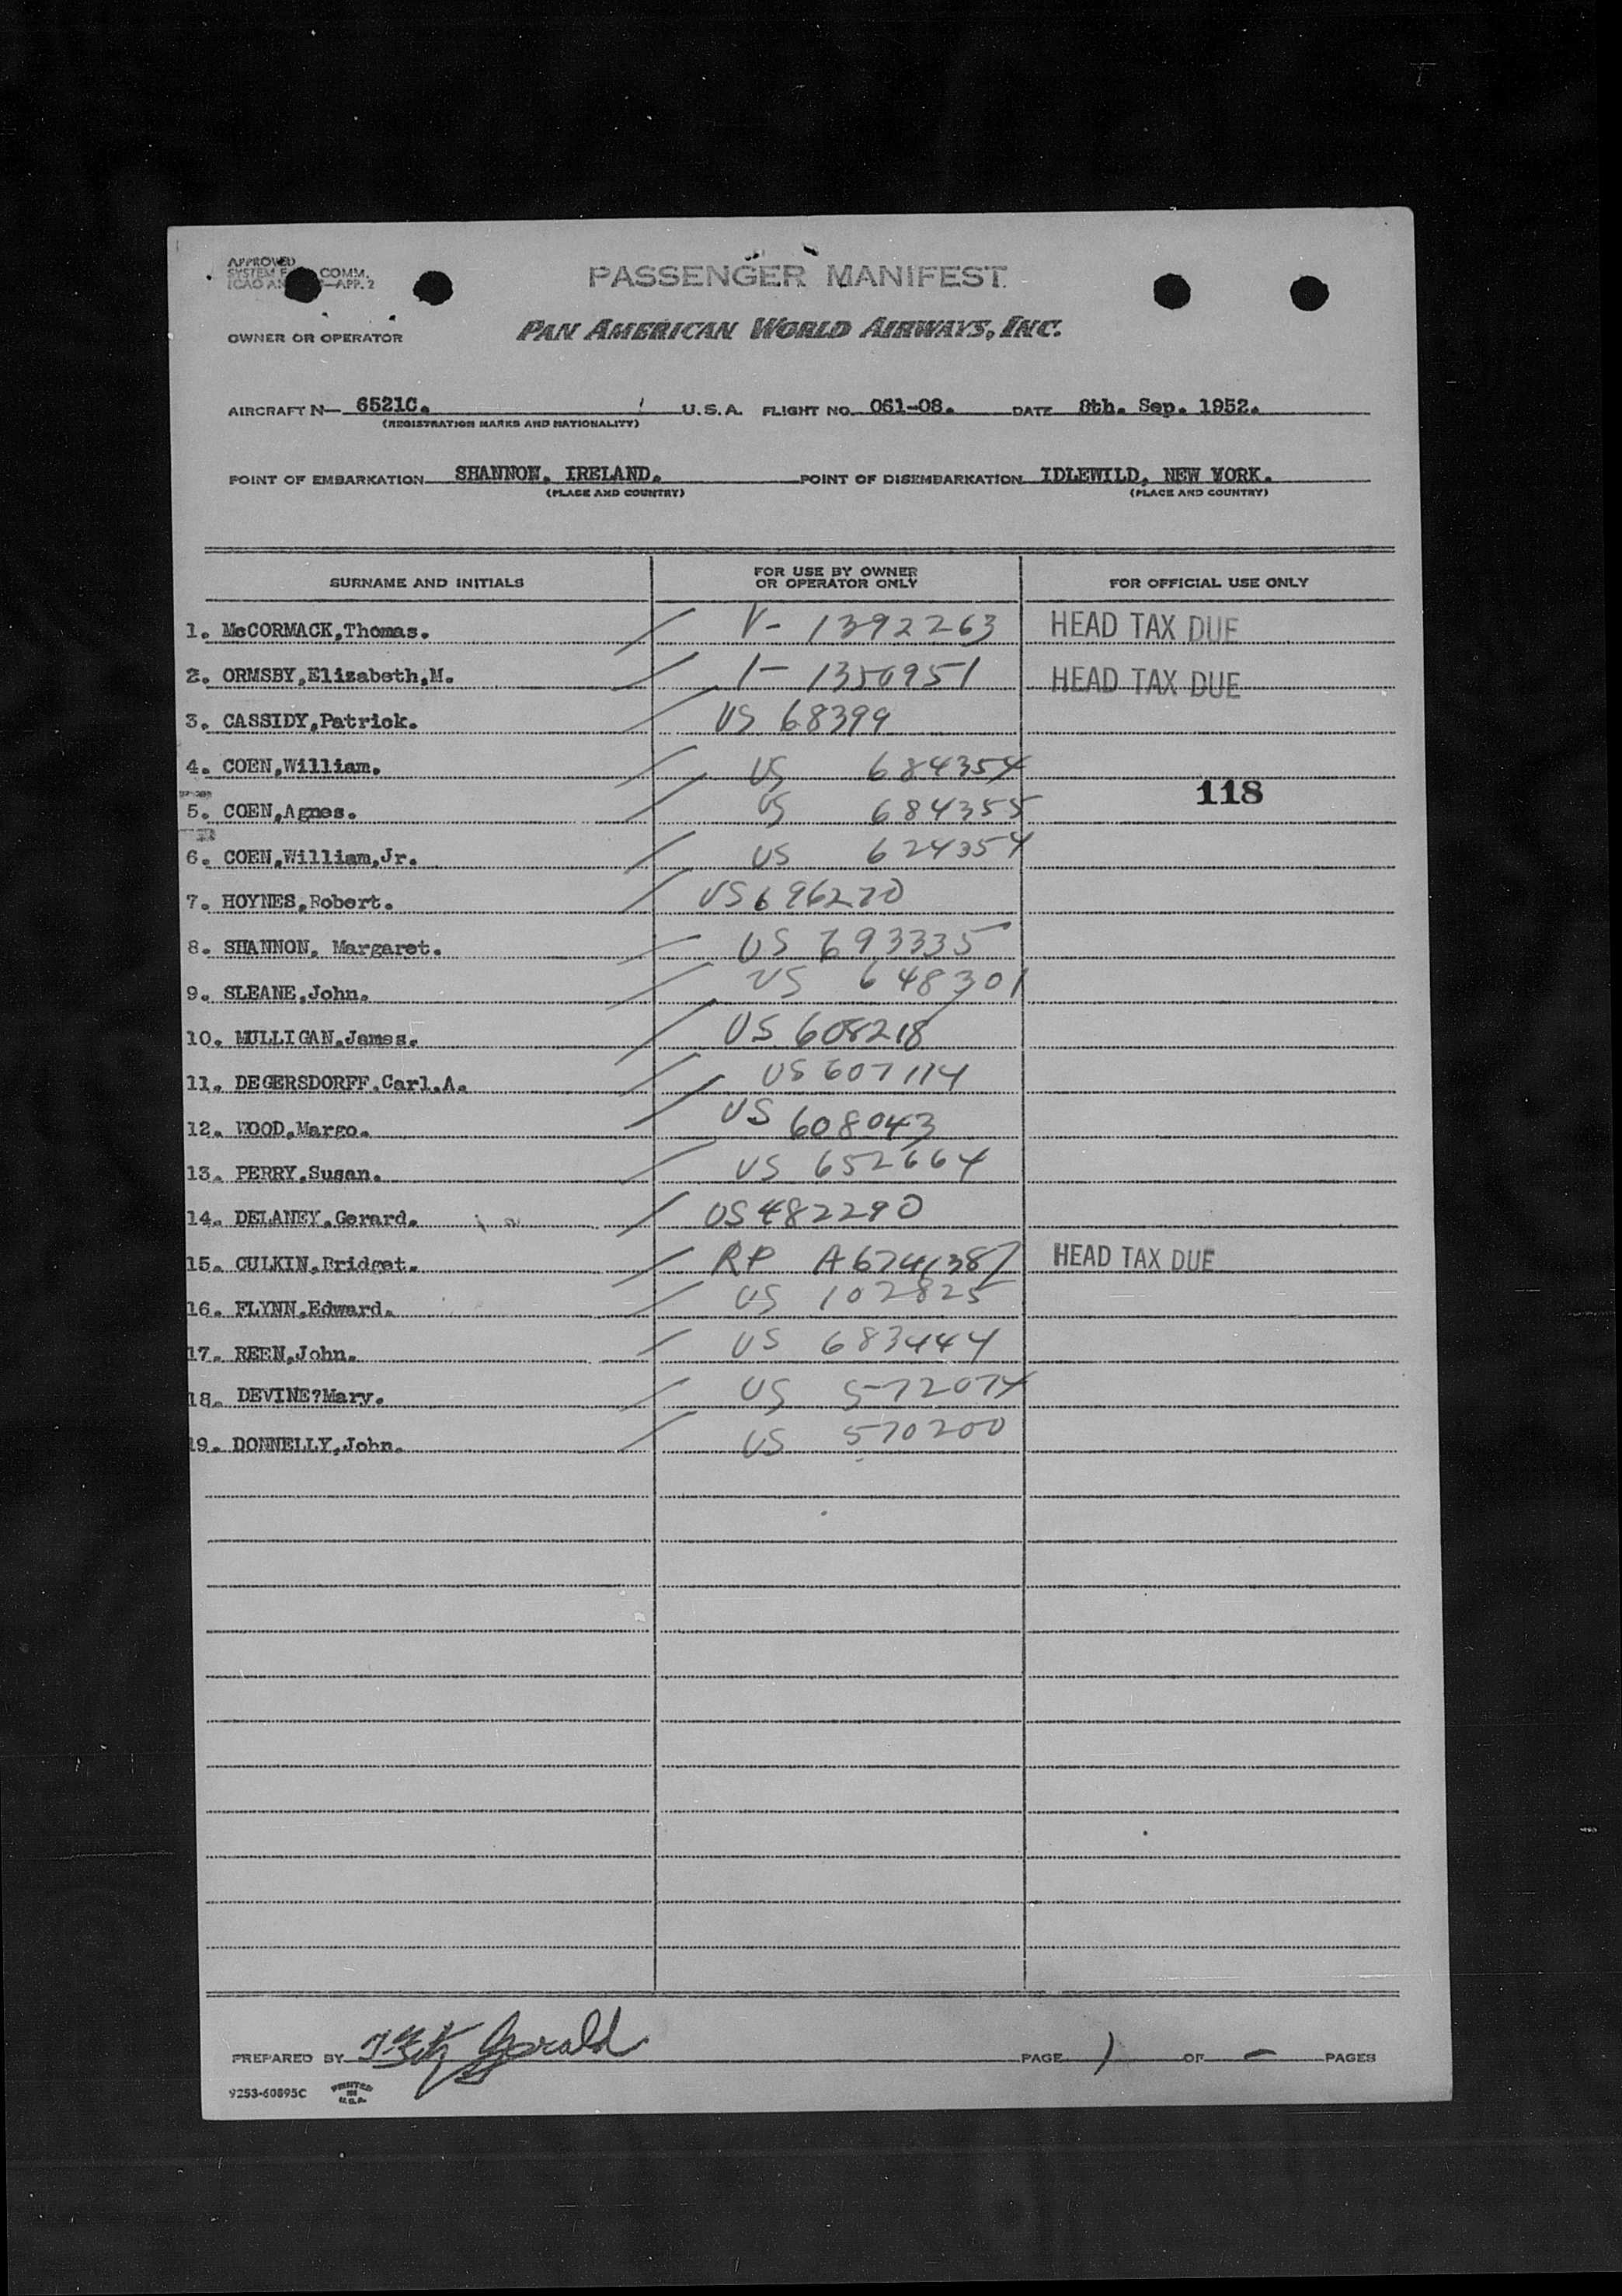 APPROVED
SYSTEM COMM.
ICAO APP. 2
PASSENGER MANIFEST
OWNER OR OPERATOR PAN AMERICAN WORLD AIRWAYS, INC.
AIRCRAFT N— 6521C. U.S.A. FLIGHT NO. 061-08. DATE 8th. Sep. 1952.
(REGISTRATION MARKS AND NATIONALITY)
POINT OF EMBARKATION SHANNON, IRELAND. POINT OF DISEMBARKATION IDLEWILD, NEW YORK.
(PLACE AND COUNTRY) (PLACE AND COUNTRY)
SURNAME AND INITIALS FOR USE BY OWNER OR OPERATOR ONLY FOR OFFICIAL USE ONLY
1. McCORMACK,Thomas. V- 1392263 HEAD TAX DUE
2. ORMSBY,Elizabeth,M. HEAD TAX DUE
3. CASSIDY,Patrick. US 68399
4. COEN,William. US 684354
118
5. COEN,Agnes. US 684355
6. COEN,William,Jr. US 624354
7. HOYNES,Robert. US 696220
8. SHANNON, Margaret. US 693335
9. SLEANE,John. US 648301
10. MULLIGAN,James. US 608218
11. DEGERSDORFF.Carl.A. US 607114
12. WOOD,Margo. US 608043
13. PERRY,Susan. US 652664
14. DELANEY,Gerard. US 482290
15. CULKIN,Bridget. RP A6741387 HEAD TAX DUE
16. FLYNN,Edward. US 102825
17. REEN,John. US 683444
18. DEVINE?Mary. US 572074
19. DONNELLY,John. US 570200
PREPARED BY Fitzgerald PAGE 1 OF – PAGES
9253-60895C PRINTED IN U.S.A.